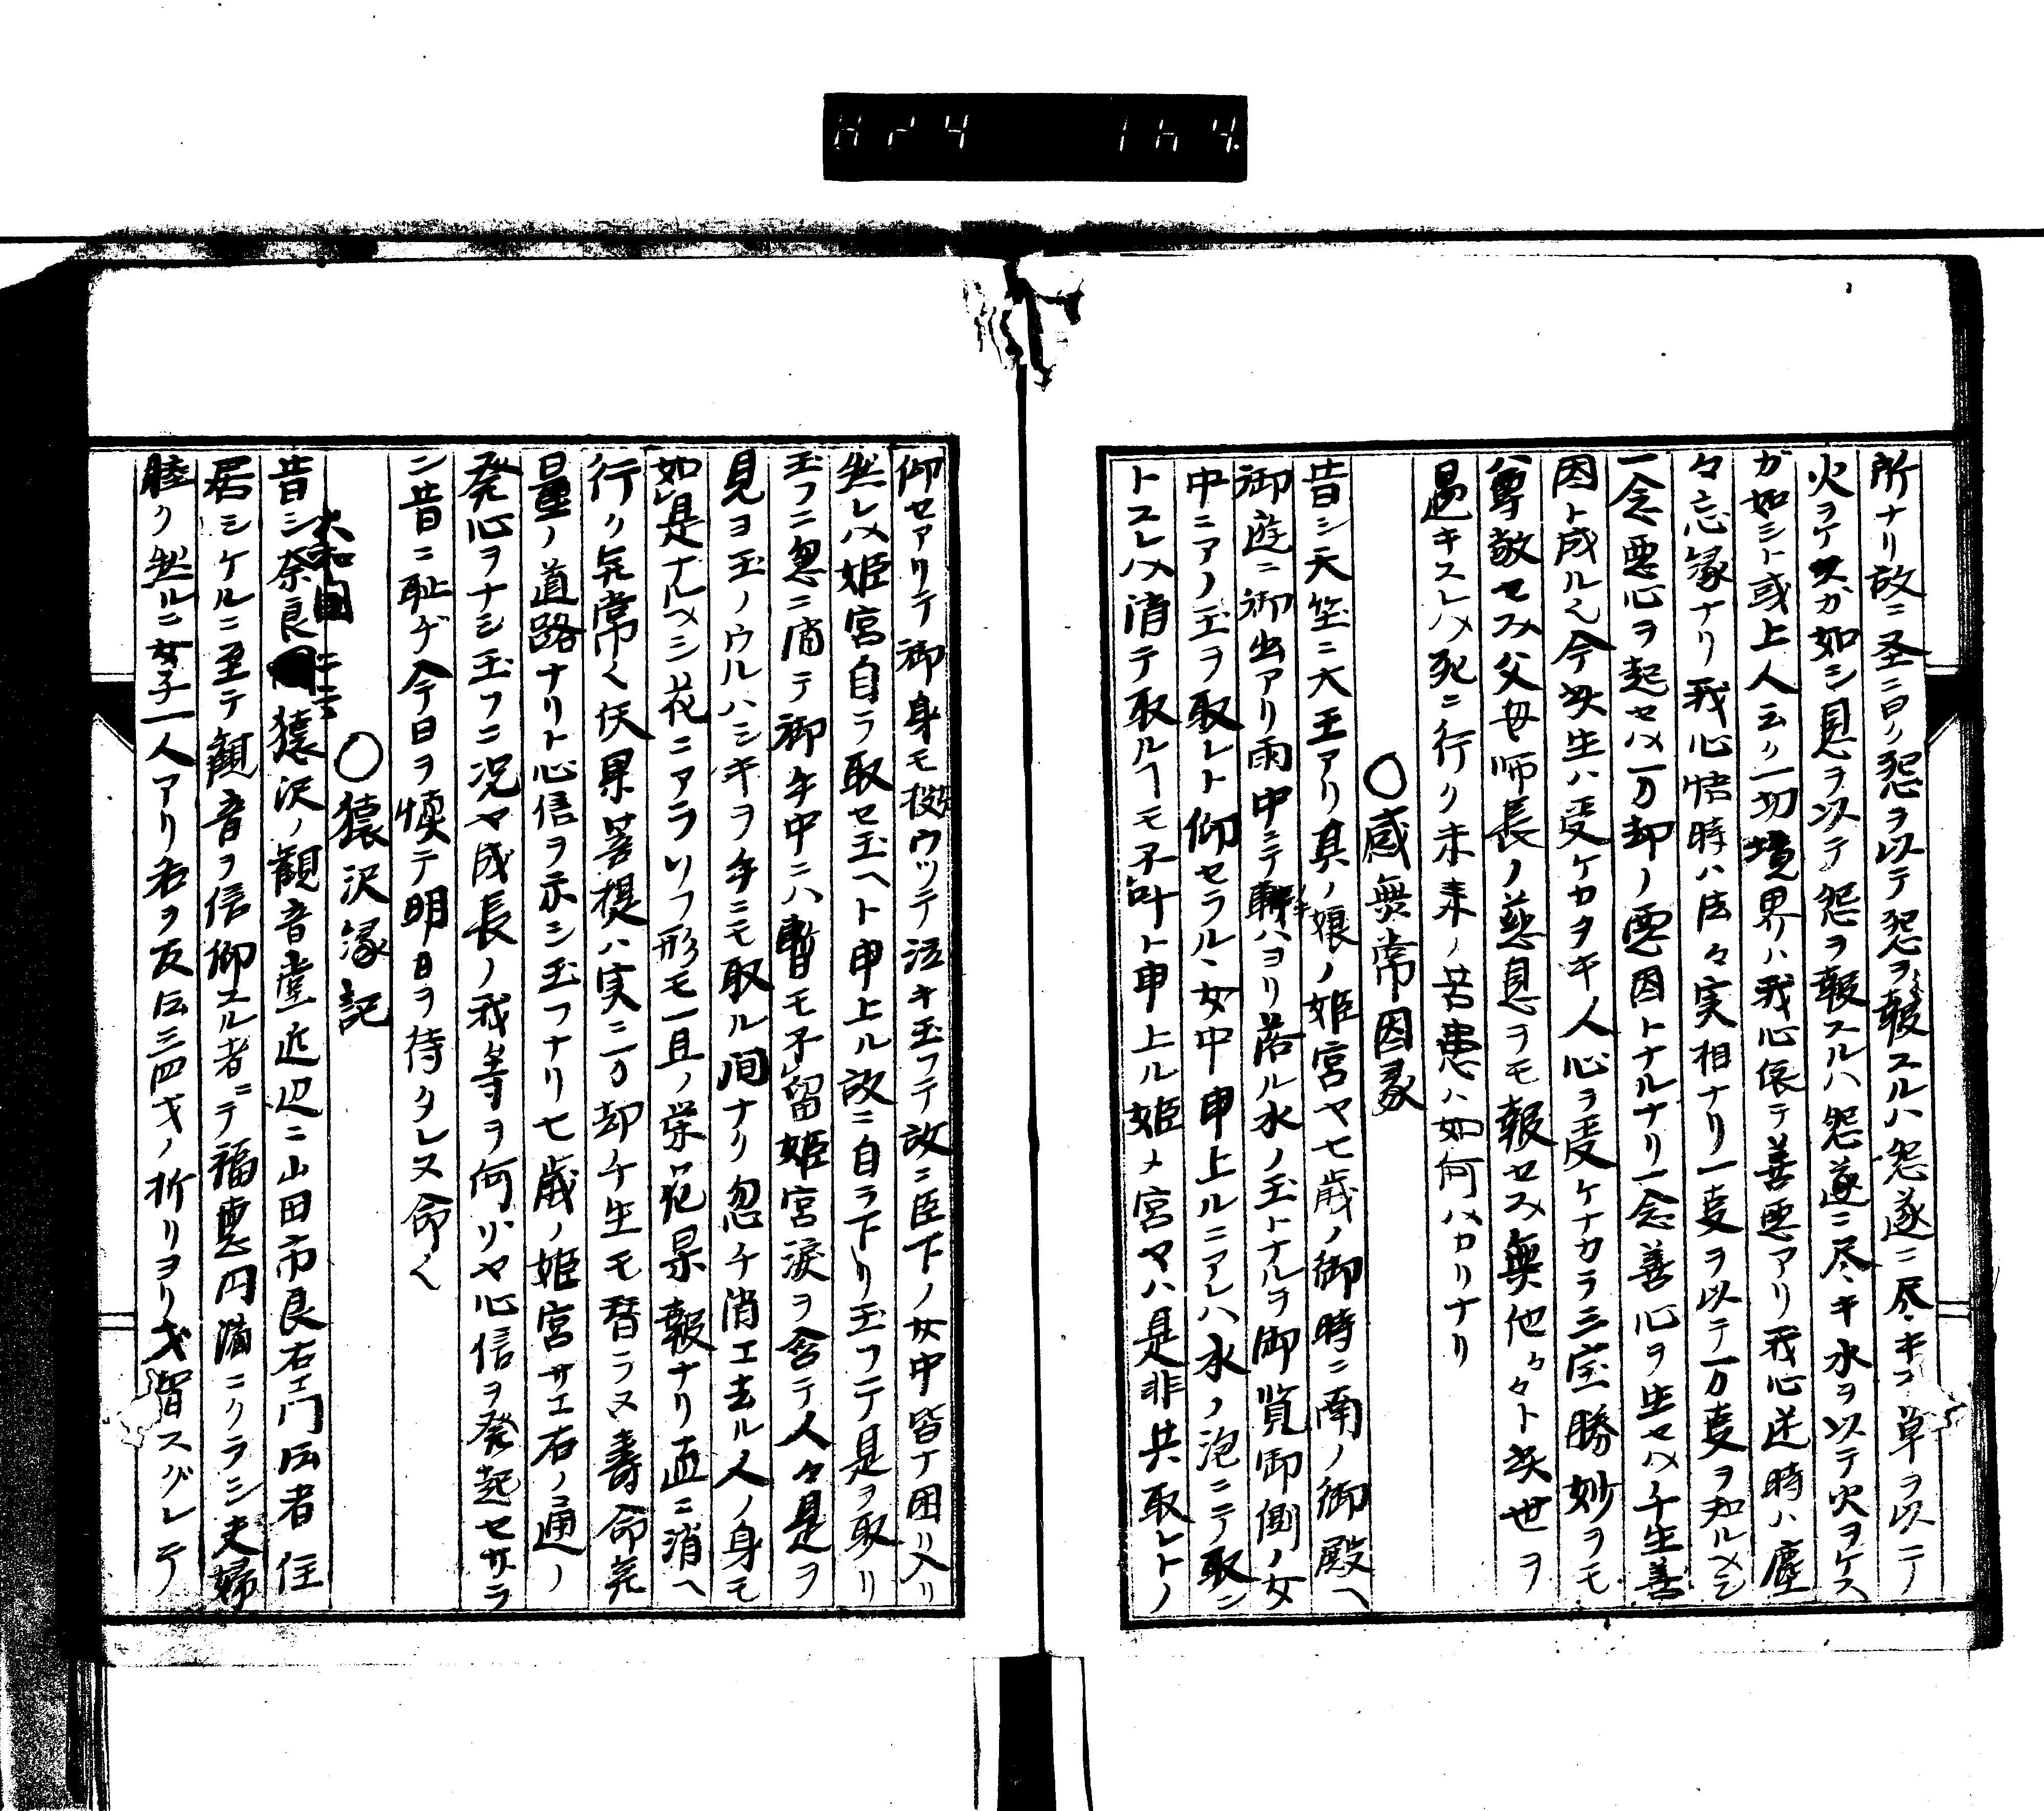 所ナリ故ニ圣ニ曰ク怨ヲ以テ怨ヲ報スルハ怨遂ニ尽キス草ヲ以テ
火ヲケスガ如シ恩ヲ以テ怨ヲ報スルハ怨遂ニ尽キ水ヲ以テ火ヲケス
ガ如シト或上人云ク一切境界ハ我心依テ善悪アリ我心迷時ハ塵
々忘縁ナリ我心悟時ハ法々実相ナリ一叓ヲ以テ万叓ヲ知ルヘシ
一念悪心ヲ起セハ万却ノ悪因トナルナリ一念善心ヲ生セハ千生善
因ト成ル也今女生ハ受ケカタキ人心ヲ受ケナカラ三宝勝妙ヲモ
尊敬セス父母师長ノ慈恩ヲモ報セス無他々々ト世ヲ
過キスレハ死ニ行ク未来ノ苦患ハ如何ハカリナリ
〇感無常因縁
昔シ天竺ニ大王アリ其ノ娘ノ姫宮ヤ七歳ノ御時ニ南ノ御殿ヘ
御遊ニ御出アリ雨中ニテ軒ハヨリ落ル水ノ玉トナルヲ御覧御側ノ女
中ニアノ玉ヲ取レト仰セラル女中申上ルニアレハ水ノ泡ニテ取ン
トスレハ消テ取ルヿモ不叶ト申上ル姫メ宮マハ是非共取レトノ
仰セアリテ御身モ投ウツテ泣キ玉フテ故ニ臣下ノ女中皆ナ困リ入リ
無レハ姫宮自ラ取セ玉ヘト申上ル故ニ自ラ下リ玉フテ是ヲ取リ
玉フニ忽ニ消テ御手中ニハ暫モ不留姫宮涙ヲ含テ人々是ヲ
見ヨ玉ノウルハシキヲ手ニモ取ル間ナク忽チ消エ去ル人ノ身モ
如是ナルヘシ花ニアラソフ形モ一旦ノ栄花果報ナリ直ニ消ヘ
行ク無常也仏果菩提ハ実ニ万却千生モ替ラヌ壽命無
量ノ道路ナリト心信ヲ示シ玉フナリ七歳ノ姫宮サエ右ノ通ノ
発心ヲナシ玉フニ况ヤ成長ノ我等ヲ何ソヤ心信ヲ発起セサラ
ン昔ニ恥ヂ今日ヲ慎テ明日ヲ待タレヌ命也
〇猿沢縁記
大和国ニテ
昔シ奈良猿沢ノ観音堂近辺ニ山田市良右エ門云者住
居シケルニ至テ観音ヲ信仰スル者ニテ福恵円満ニクラシ夫婦
睦ク無ルニ女子一人アリ名ヲ友云三四才ノ折リヨリ才智スグレテ